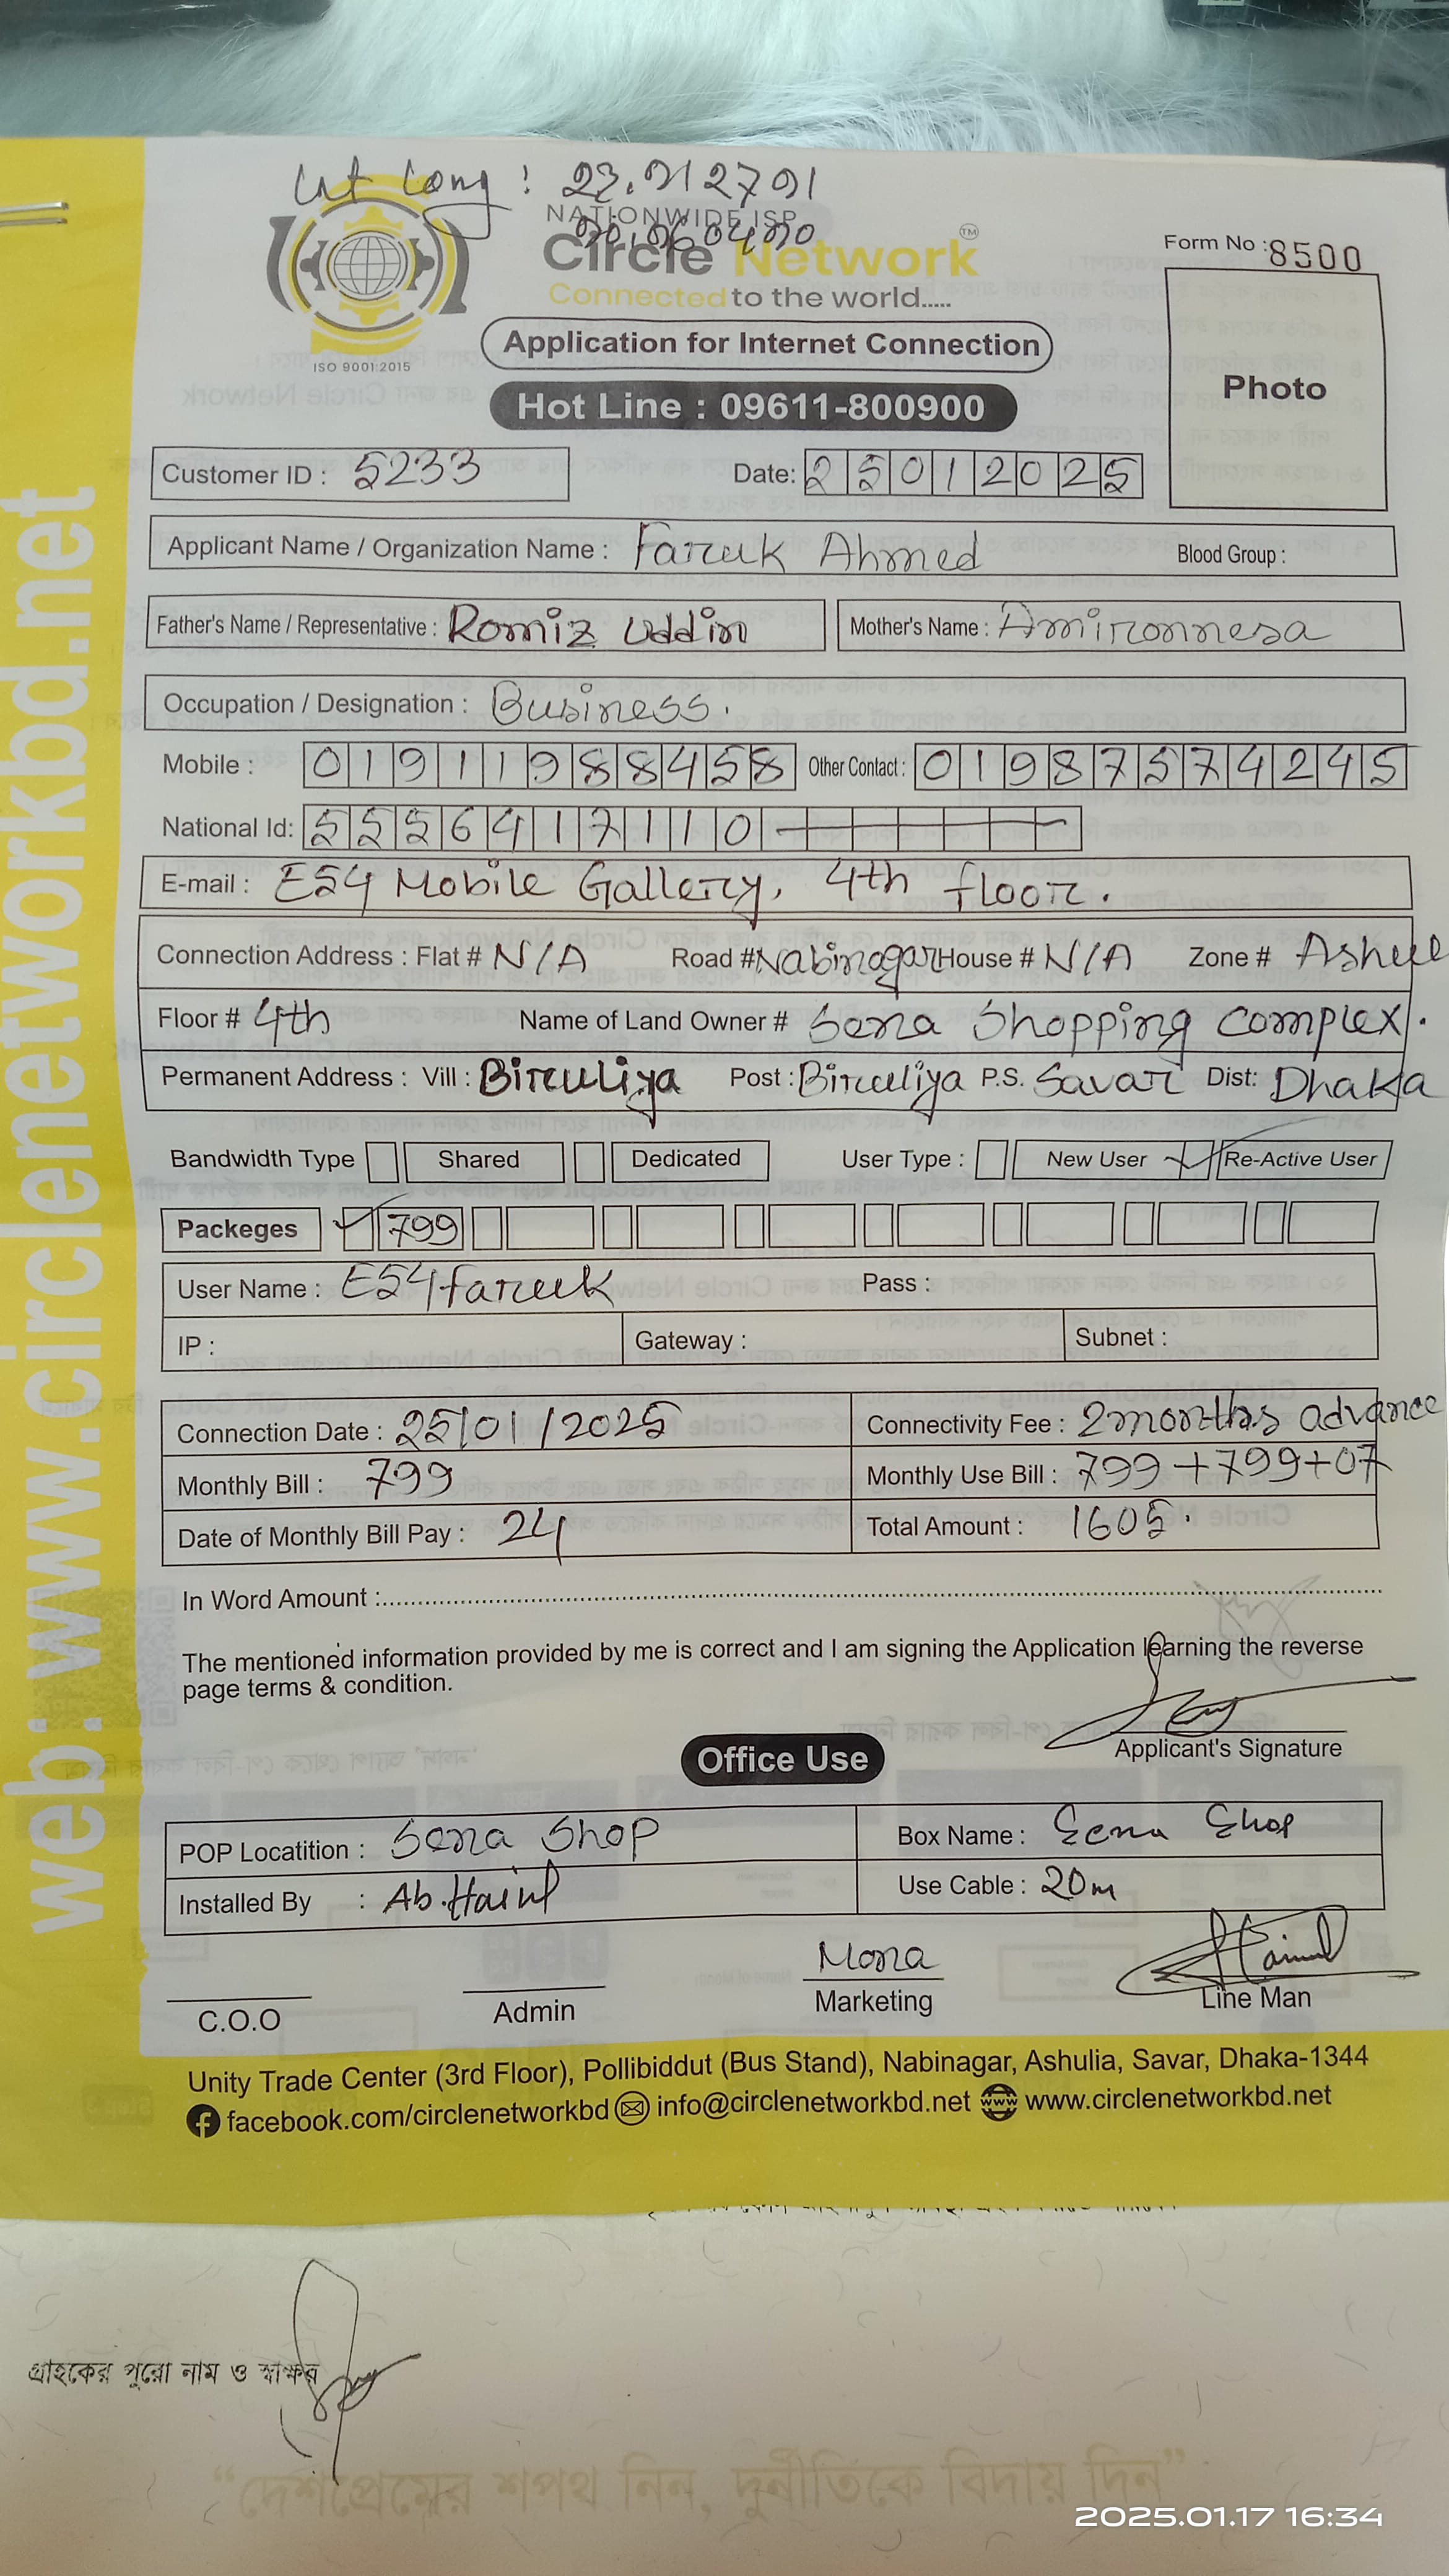 Lat Long : 23.912791
NATIONWIDE ISP
Circle Network ™
Connected to the world.....
ISO 9001:2015
Form No : 8500
Application for Internet Connection
Photo
Hot Line : 09611-800900
Customer ID : 5233 Date: 25012025
Applicant Name / Organization Name : Faruk Ahmed Blood Group :
Father's Name / Representative : Romiz Uddin Mother's Name : Amironnesa
Occupation / Designation : Business.
Mobile : 01911988458 Other Contact : 01987574245
National Id: 5556417110
E-mail : E54 Mobile Gallery, 4th floor.
Connection Address : Flat # N/A Road # Nabinagar House # N/A Zone #
Floor # 4th Name of Land Owner # Sena Shopping Complex.
Permanent Address : Vill : Biruliya Post : Biruliya P.S. Savar Dist: Dhaka
Bandwidth Type Shared Dedicated User Type : New User Re-Active User
Packeges 799
User Name : E54faruk Pass :
IP : Gateway : Subnet :
Connection Date : 25/01/2025 Connectivity Fee : 2months advance
Monthly Bill : 799 Monthly Use Bill : 799+799+07
Date of Monthly Bill Pay : 24 Total Amount : 1605.
In Word Amount :
The mentioned information provided by me is correct and I am signing the Application learning the reverse
page terms & condition.
Applicant's Signature
Office Use
POP Locatition : Sena Shop Box Name : Sena Shop
Installed By : Ab. Use Cable : 20m
Mona
C.O.O Admin Marketing Line Man
Unity Trade Center (3rd Floor), Pollibiddut (Bus Stand), Nabinagar, Ashulia, Savar, Dhaka-1344
facebook.com/circlenetworkbd info@circlenetworkbd.net www.circlenetworkbd.net
web: www.circlenetworkbd.net
গ্রাহকের পুরো নাম ও স্বাক্ষর
“দেশপ্রেমের শপথ নিন, দুর্নীতিকে বিদায় দিন”
2025.01.17 16:34